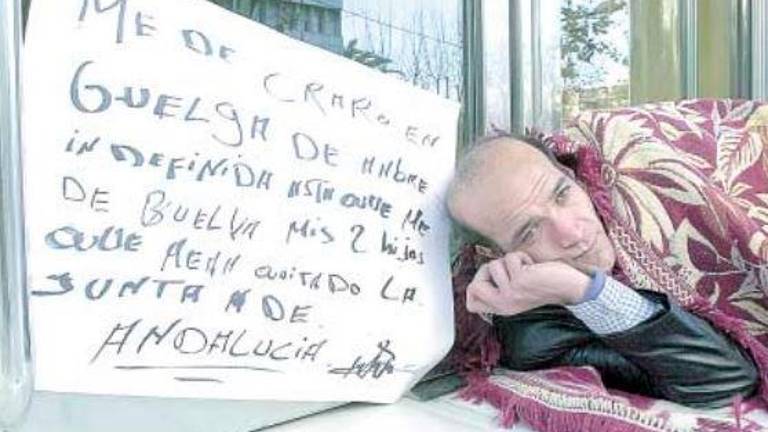 ME DE CRARO EN
GUELGA DE ANBRE
INDEFINIDA ASTA QUE ME
DE BUELVA MIS 2 hijos
QUE MEAN QUITADO LA
JUNTA A DE
ANDALUCIA